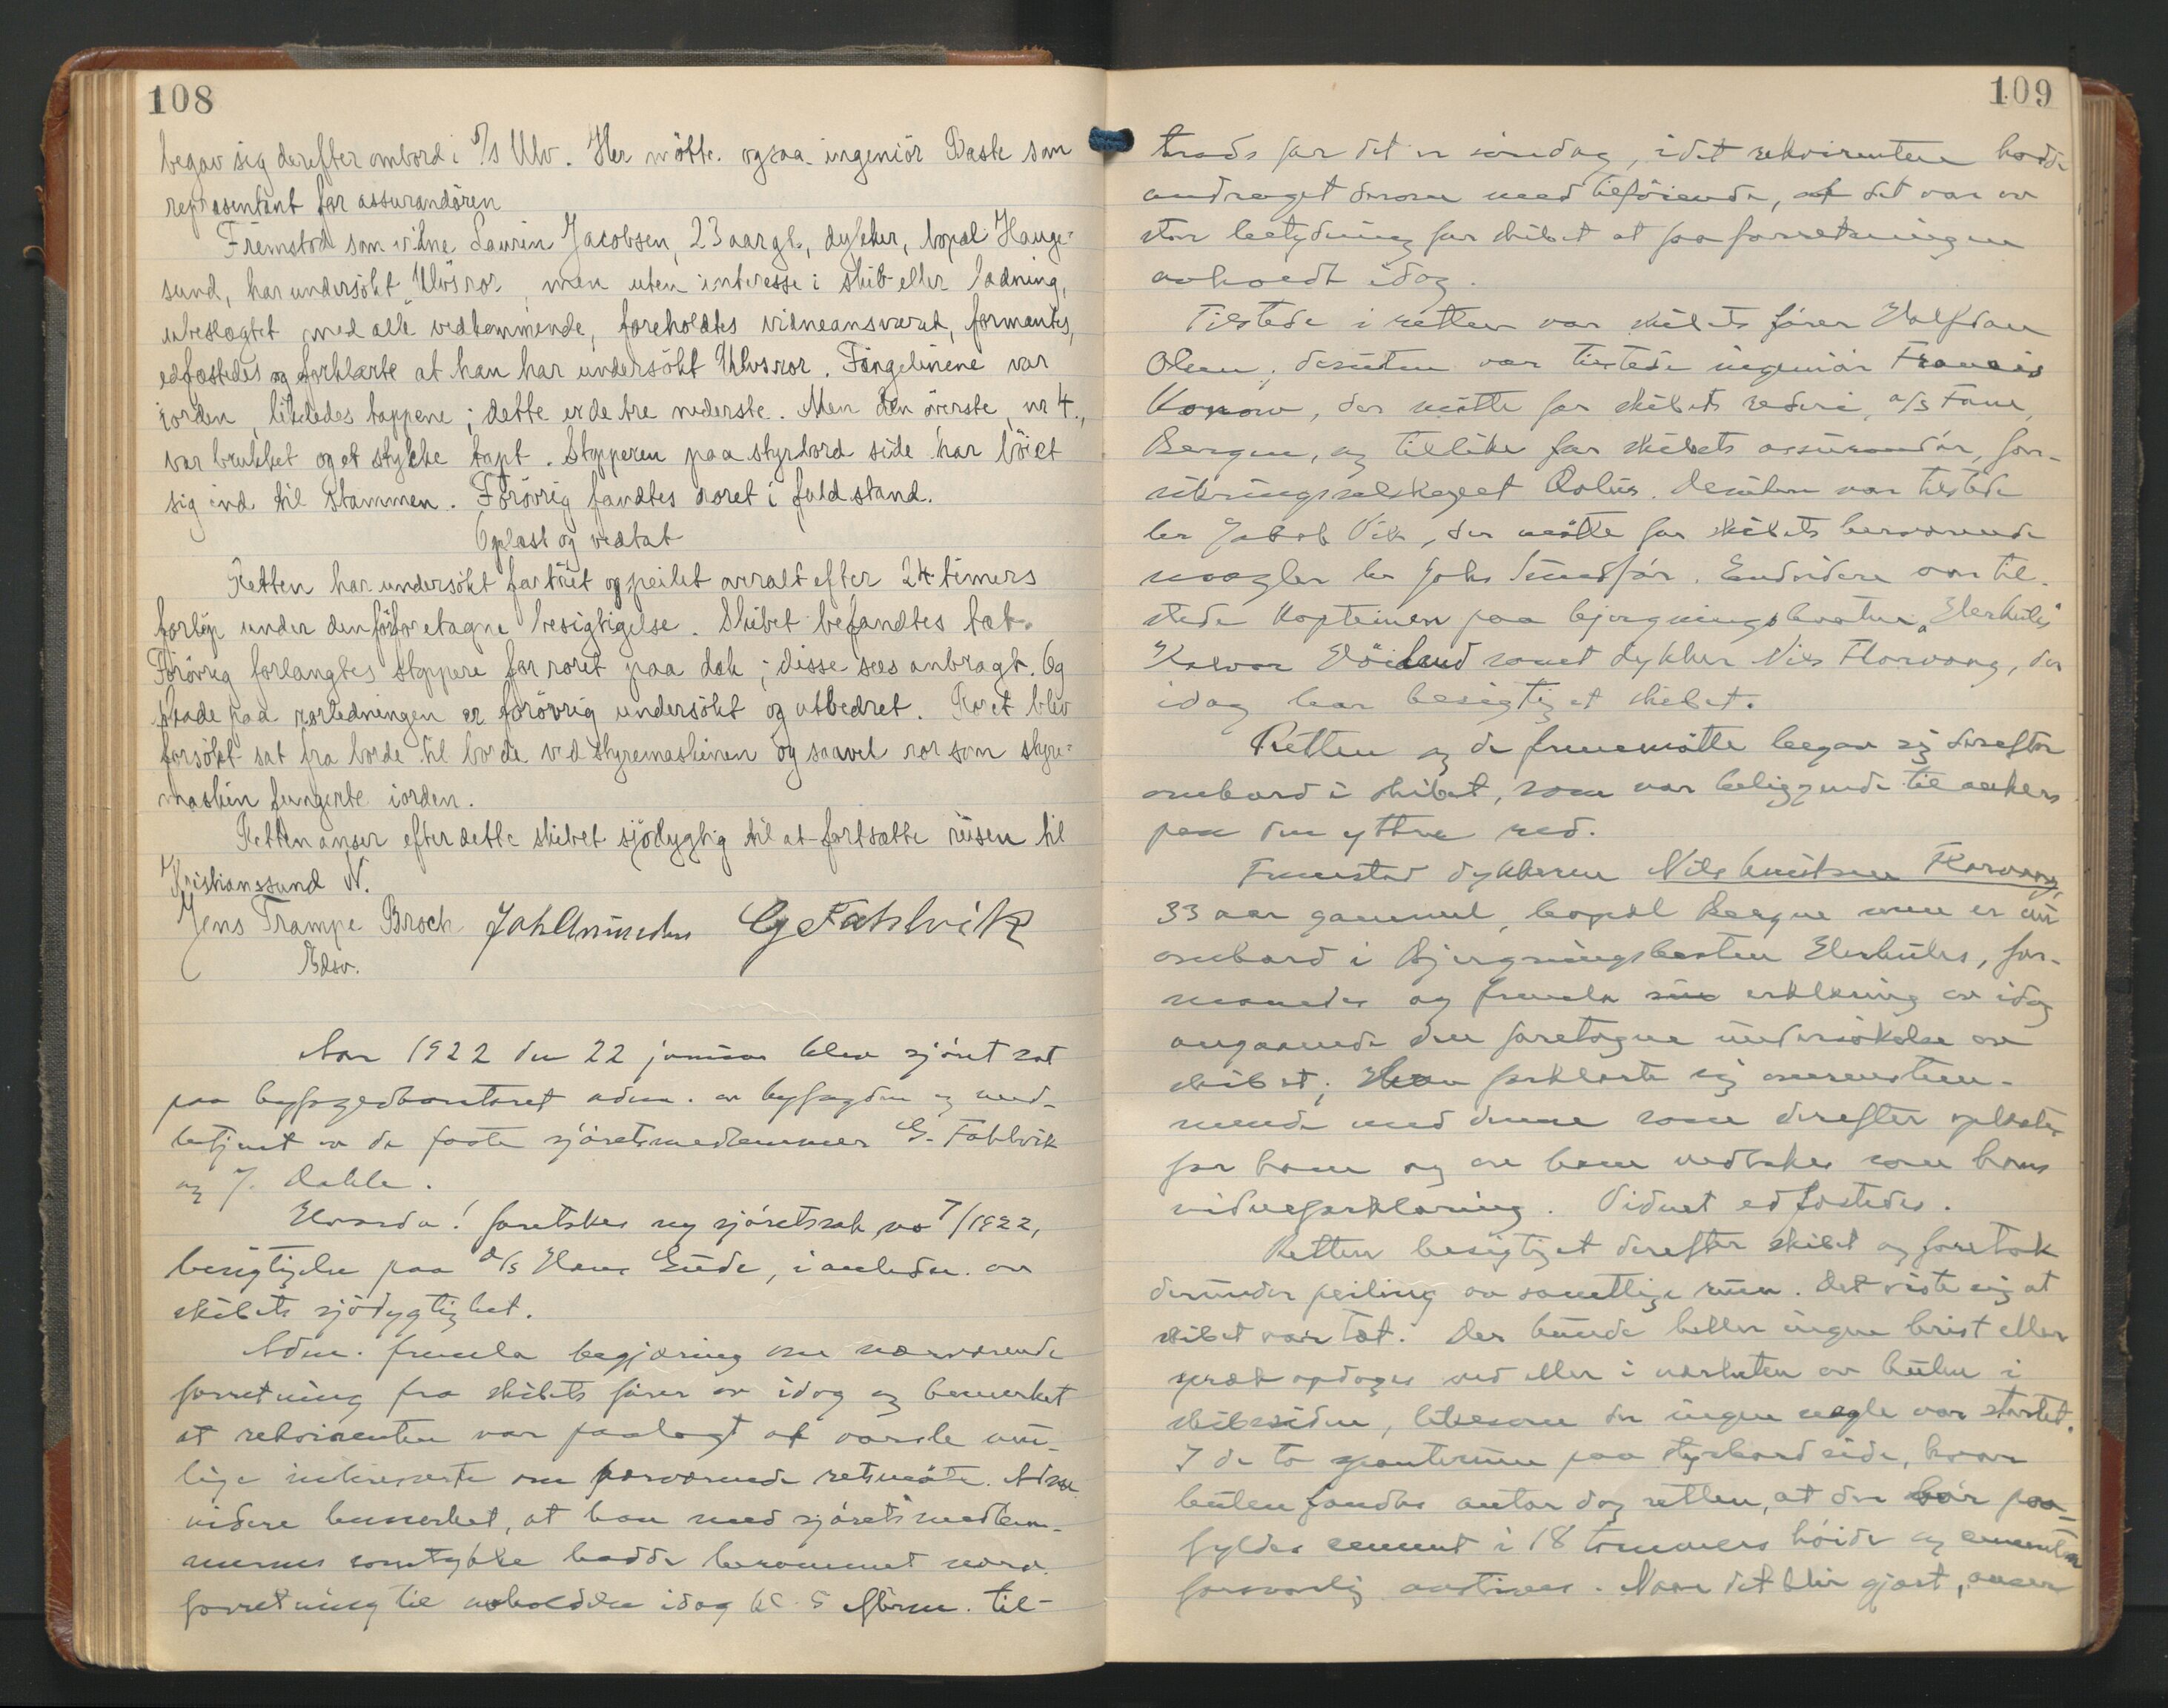 108
begav sig derefter ombord i S/S Ulv. Her mötte ogsaa ingeniör Baste som
repræsentant for assurandören
Fremstod som vidne Laurin Jacobsen, 23 aar gl., dykker, bopæl Hauge=
sund, har undersökt Ulvs ror, men uten interesse i skib eller ladning,
ubeslægtet med alle vedkommende, foreholdtes vidneansvaret, formantes,
edfæstedes og forklarte at han har undersökt Ulvs ror. Fingelinene var
iorden, likeledes tappene; dette er de tre nederste. Men den överste, nr 4.,
var brukket og et stykke tapt. Stopperen paa styrbord side har böiet
sig ind til stammen. Forövrig fandtes roret i fuld stand.
Oplæst og vedtat
Retten har undersökt fartöiet og peilet overalt efter 24 timers
forlöp under den foretagne besigtigelse. Skibet befandtes tæt.
Forövrig forlangtes stoppere for roret paa dæk; disse sees anbragt. Og
skade paa rorledningen er forövrig undersökt og utbedret. Roret blev
forsökt sat fra borde til borde ved styremaskinen og saavel ror som styre=
maskin fungerte iorden.
Retten anser efter dette skibet sjödygtig til at fortsætte reisen til
Kristianssund N.
Jens Trampe Broch G Fahlvik
Edsv.
Aar 1922 den 22 januar blev sjöret sat
paa byfogedkontoret adm. av byfogden og med-
betjent av de faste sjöretsmedlemmer G. Fahlvik
og J. Dahle.
Hvorda! foretokes ny sjöretssak no 7/1922,
besigtigelse paa D/S Hans Gude, i anledn. av
skibets sjödygtighet.
Adm. fremla begjæring om nærværende
forretning fra skibets förer av idag og bemerket
at rekvirenten var paalagt at varsle mu-
lige interesserte om nærværende retsmöte. Adm.
videre bemerket, at han med sjöretsmedlem-
mernes samtykke hadde berammet nærv.
forretning til avholdelse idag kl. 5 efterm. til-
109
trods for det er söndag, idet rekvirenten hadde
andraget derom med tilföiende, at det var av
stor betydning for skibet at faa forretningen
avholdt idag.
Tilstede i retten var skibets förer Halfdan
Olsen; desuten var tilstede ingeniör Francis
Konow, der mötte for skibets rederi, A/S Fane,
Bergen, og tillike for skibets assurandör, for-
sikringsselskapet Æolus. Desuten var tilstede
hr Jakob Vik, der mötte for skibets herværende
mægler hr Johs Sundför. Endvidere var til-
stede kapteinen paa bjergningsbaaten "Herkules"
Halvor Vöilund samt dykker Nils Florvaag, der
idag har besigtiget skibet.
Retten og de fremmötte begav sig derefter
ombord i skibet, som var beliggende til ankers
paa den yttre red.
Fremstod dykkeren Nils Knutsen Florvaag,
33 aar gammel, bopæl Bergen men er nu
ombord i Bjergningsbaaten Herkules, for-
manedes og fremla sin erklæring av idag
angaaende den foretagne undersökelse av
skibet; Han forklarte sig overensstem-
mende med denne som derefter oplæstes
for ham og av ham vedtokes som hans
vidneforklaring. Vidnet edfæstedes.
Retten besigtiget derefter skibet og foretok
derunder peiling av samtlige rum. Det viste sig at
skibet var tæt. Der kunde heller ingen brist eller
spræk opdages ved eller i nærheten av bulen i
skibssiden, likesom der ingen nagle var startet.
I de to spanterum paa styrbord side, hvor
bulen fandtes antar dog retten, at der bör paa-
fyldes cement i 18 tommers höide og cementen
forsvarlig avstives. Naar det blir gjort, anser